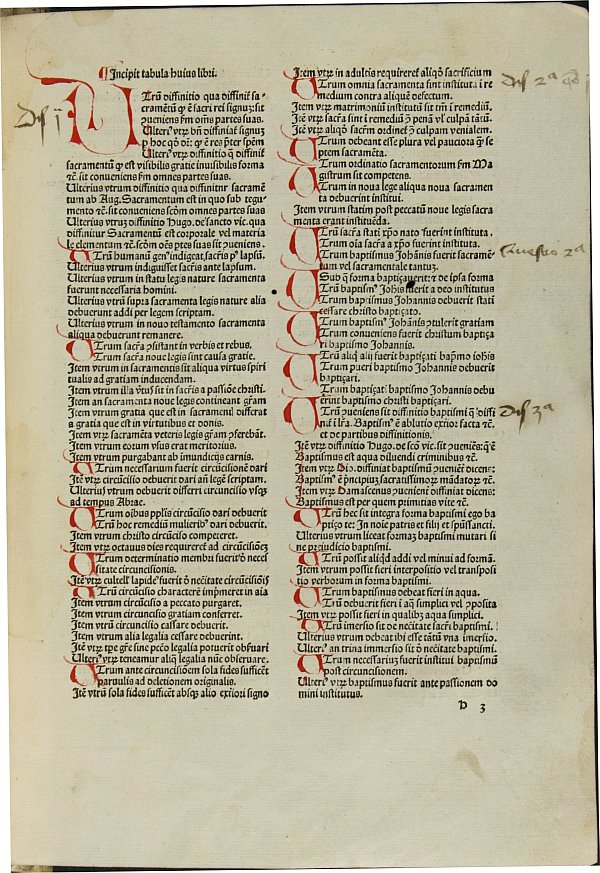 ¶ Incipit tabula huius libri.
UTrū diffinitio qua diffinit̄ sa-
cramētū qꝫ ē sacri rei signuꝫ: sit
ꝯueniens fm om̄s partes suas.
Ulteriꝰ vtꝝ bn̄ diffiniat̄ signuꝫ
Ulteriꝰ vtꝝ diffinitio q̄ diffinit̄
sacramentū qꝫ est visibilis gratie inuisibilis forma
⁊c̄. sit conueniens fm omnes partes suas.
Ulterius vtrum diffinitio qua diffinitur sacramē
tum ab Aug. Sacramentum est in quo sub tegu-
mento ⁊c̄. sit conueniens scḋm omnes partes suas
Ulterius vtruꝫ diffinitio Hugo. de sancto vic. qua
diffinitur Sacramentū est corporale vel materia
le elementum ⁊c̄. scḋm oēs ꝑtes suas sit ꝯueniens.
UTrū humanū genꝰ indigeat sacris pꝰ lapsū.
Ulterius vtrum indiguisset sacris ante lapsum.
Ulterius vtrum in statu legis nature sacramenta
fuerunt necessaria homini.
Ulterius vtrū supra sacramenta legis nature alia
debuerunt addi per legem scriptam.
Ulterius vtrum in nouo testamento sacramenta
aliqua debuerunt remanere.
UTrum sacra ꝯsistant in verbis et rebus.
UTrum sacra noue legis sint causa gratie.
Item vtrum in sacramentis sit aliqua virtus spiri
tualis ad gratiam inducendam.
Item vtrum illa v̄tus sit in sacris a passiōe christi
Item an sacramenta noue legis contineant gram̄
Item vtrum gratia que est in sacramentꝭ differat
a gratia que est in virtutibus et donis.
Item vtꝝ sacramēta veteris legis gram̄ ꝯferebāt.
Item vtrum eorum vsus erat meritorius.
Item vtrum purgabant ab imundicijs carnis.
UTrum necessarium fuerit circūcisionē dari
Itē vtꝝ circūcisio debuerit dari an̄ legē scriptam.
Ulteriꝰ vtrum debuerit differri circuncisio vsqꝫ
ad tempus Abrae.
UTrum oibus pplis circūcisio dari debuerit
UTrū hoc remediū mulieribꝰ dari debuerit.
Item vtrum christo circūcisio competeret.
Item vtꝝ octauus dies requireret̄ ad circūcisiōeꝫ
UTrum determinato membri fuerit ō necef
sitate circuncisionis.
Itē vtꝝ cultellꝰ lapideꝰ fuerit ō necitate circūcisiōis
UTrū circūcisio characterē imp̄meret in aīa
Item vtrum circūcisio a peccato purgaret.
Item vtrum circuncisio gratiam conferret.
Item vtrū circuncisio cassare debuerit.
Item vtrum alia legalia cessare debuerint.
Ulteriꝰ vtꝝ teneamur aliqꝫ legalia nūc obseruare.
UTrum ante circuncisiōem sola fides suffecit
paruulis ad deletionem originalis.
Itē vtrū sola fides suffecit absqꝫ alio exteriori signo
Item vtꝝ in adultis requireret̄ aliqḋ sacrificium
UTrum omnia sacramenta sint instituta i re
medium contra aliquē defectum.
Item vtꝝ matrimoniū institutū sit tm̄ i remediū.
Itē vtꝝ sacra sint i remediū ꝯ penā vl' culpā tātū.
Item vtꝝ aliqḋ sacrm̄ ordinet̄ ꝯ culpam venialem.
UTrum debeant esse plura vel pauciora qꝫ se
ptem sacramēta.
UTrum ordinatio sacramentorum fm Ma
gistrum sit competens.
UTrum in noua lege aliqua noua sacramen
ta debuerint institui.
Item vtrum statim post peccatū noue legis sacra
menta erant instituēda.
UTrū sacra stati xp̄o nato fuerint instituta.
UTrum oīa sacra a xp̄o fuerint instituta.
UTrum baptismus Johānis fuerit sacramē
tum vel sacramentale tantuꝫ.
Sub q̄ forma baptiçauerit: ⁊ de ipsa forma
UTrū baptismꝰ Johis fuerit a deo institutus
UTrum baptismus Johannis debuerit stati
cessare christo baptiçato.
UTrum baptismꝰ Johānis ꝯtulerit gratiam
UTrum conueniens fuerit christum baptiça
ri baptismo Johannis.
UTrū aliqḋ alij fuerit baptiçati bap̄mo iohis
UTrum pueri baptismo Johannis debuerit
baptiçari.
UTrum baptiçati baptismo Johannis debu
erint baptismo christi baptiçari.
UTrū ꝯueniens sit diffinitio baptismi q̄ diffi
nit̄ i lr̄a. Baptismꝰ ē ablutio exterior facta ⁊c̄.
et de partibus diffinitionis.
Itē vtꝝ diffinitio Hugo. de scō vic. sit ꝯueniēs: qꝫ ē
Baptismus est aqua diluendi criminibus ⁊c̄.
Item vtꝝ Dio. diffiniat baptismū ꝯueniēt dicens:
Baptismꝰ ē pncipiuꝫ sacratissimoꝝ mādatoꝝ ⁊c̄.
Item vtꝝ Damascenus ꝯuenienṫ diffiniat dicens:
Baptismus est per quem primitias vite ⁊c̄.
UTrū hec sit integra forma baptismi ego ba
ptiço te: In noīe patris et filij et spūssancti.
Ulterius vtrum liceat formaꝫ baptismi mutari si
ne preiudicio baptismi.
UTrū possit aliqḋ addi vel minui ad formā.
Item vtrum possit fieri interpositio vel transposi
tio verborum in forma baptismi.
UTrum baptismus debeat fieri in aqua.
UTrū debuerit fieri i aꝗ simplici vel ꝯposita
Item vtꝝ possit fieri in qualibꝫ aqua simplici.
UTrū imersio sit ōe necitate sacri baptismi.
Ulterius vtrum debeat ibi esse tātū vna imersio.
Ulteriꝰ an trina immersio sit ō necitate baptismi.
UTrum necessariuꝫ fuerit institui baptismū
post circuncisionem.
Ulteriꝰ vtꝝ baptismus fuerit ante passionem do
mini institutus.
D 3